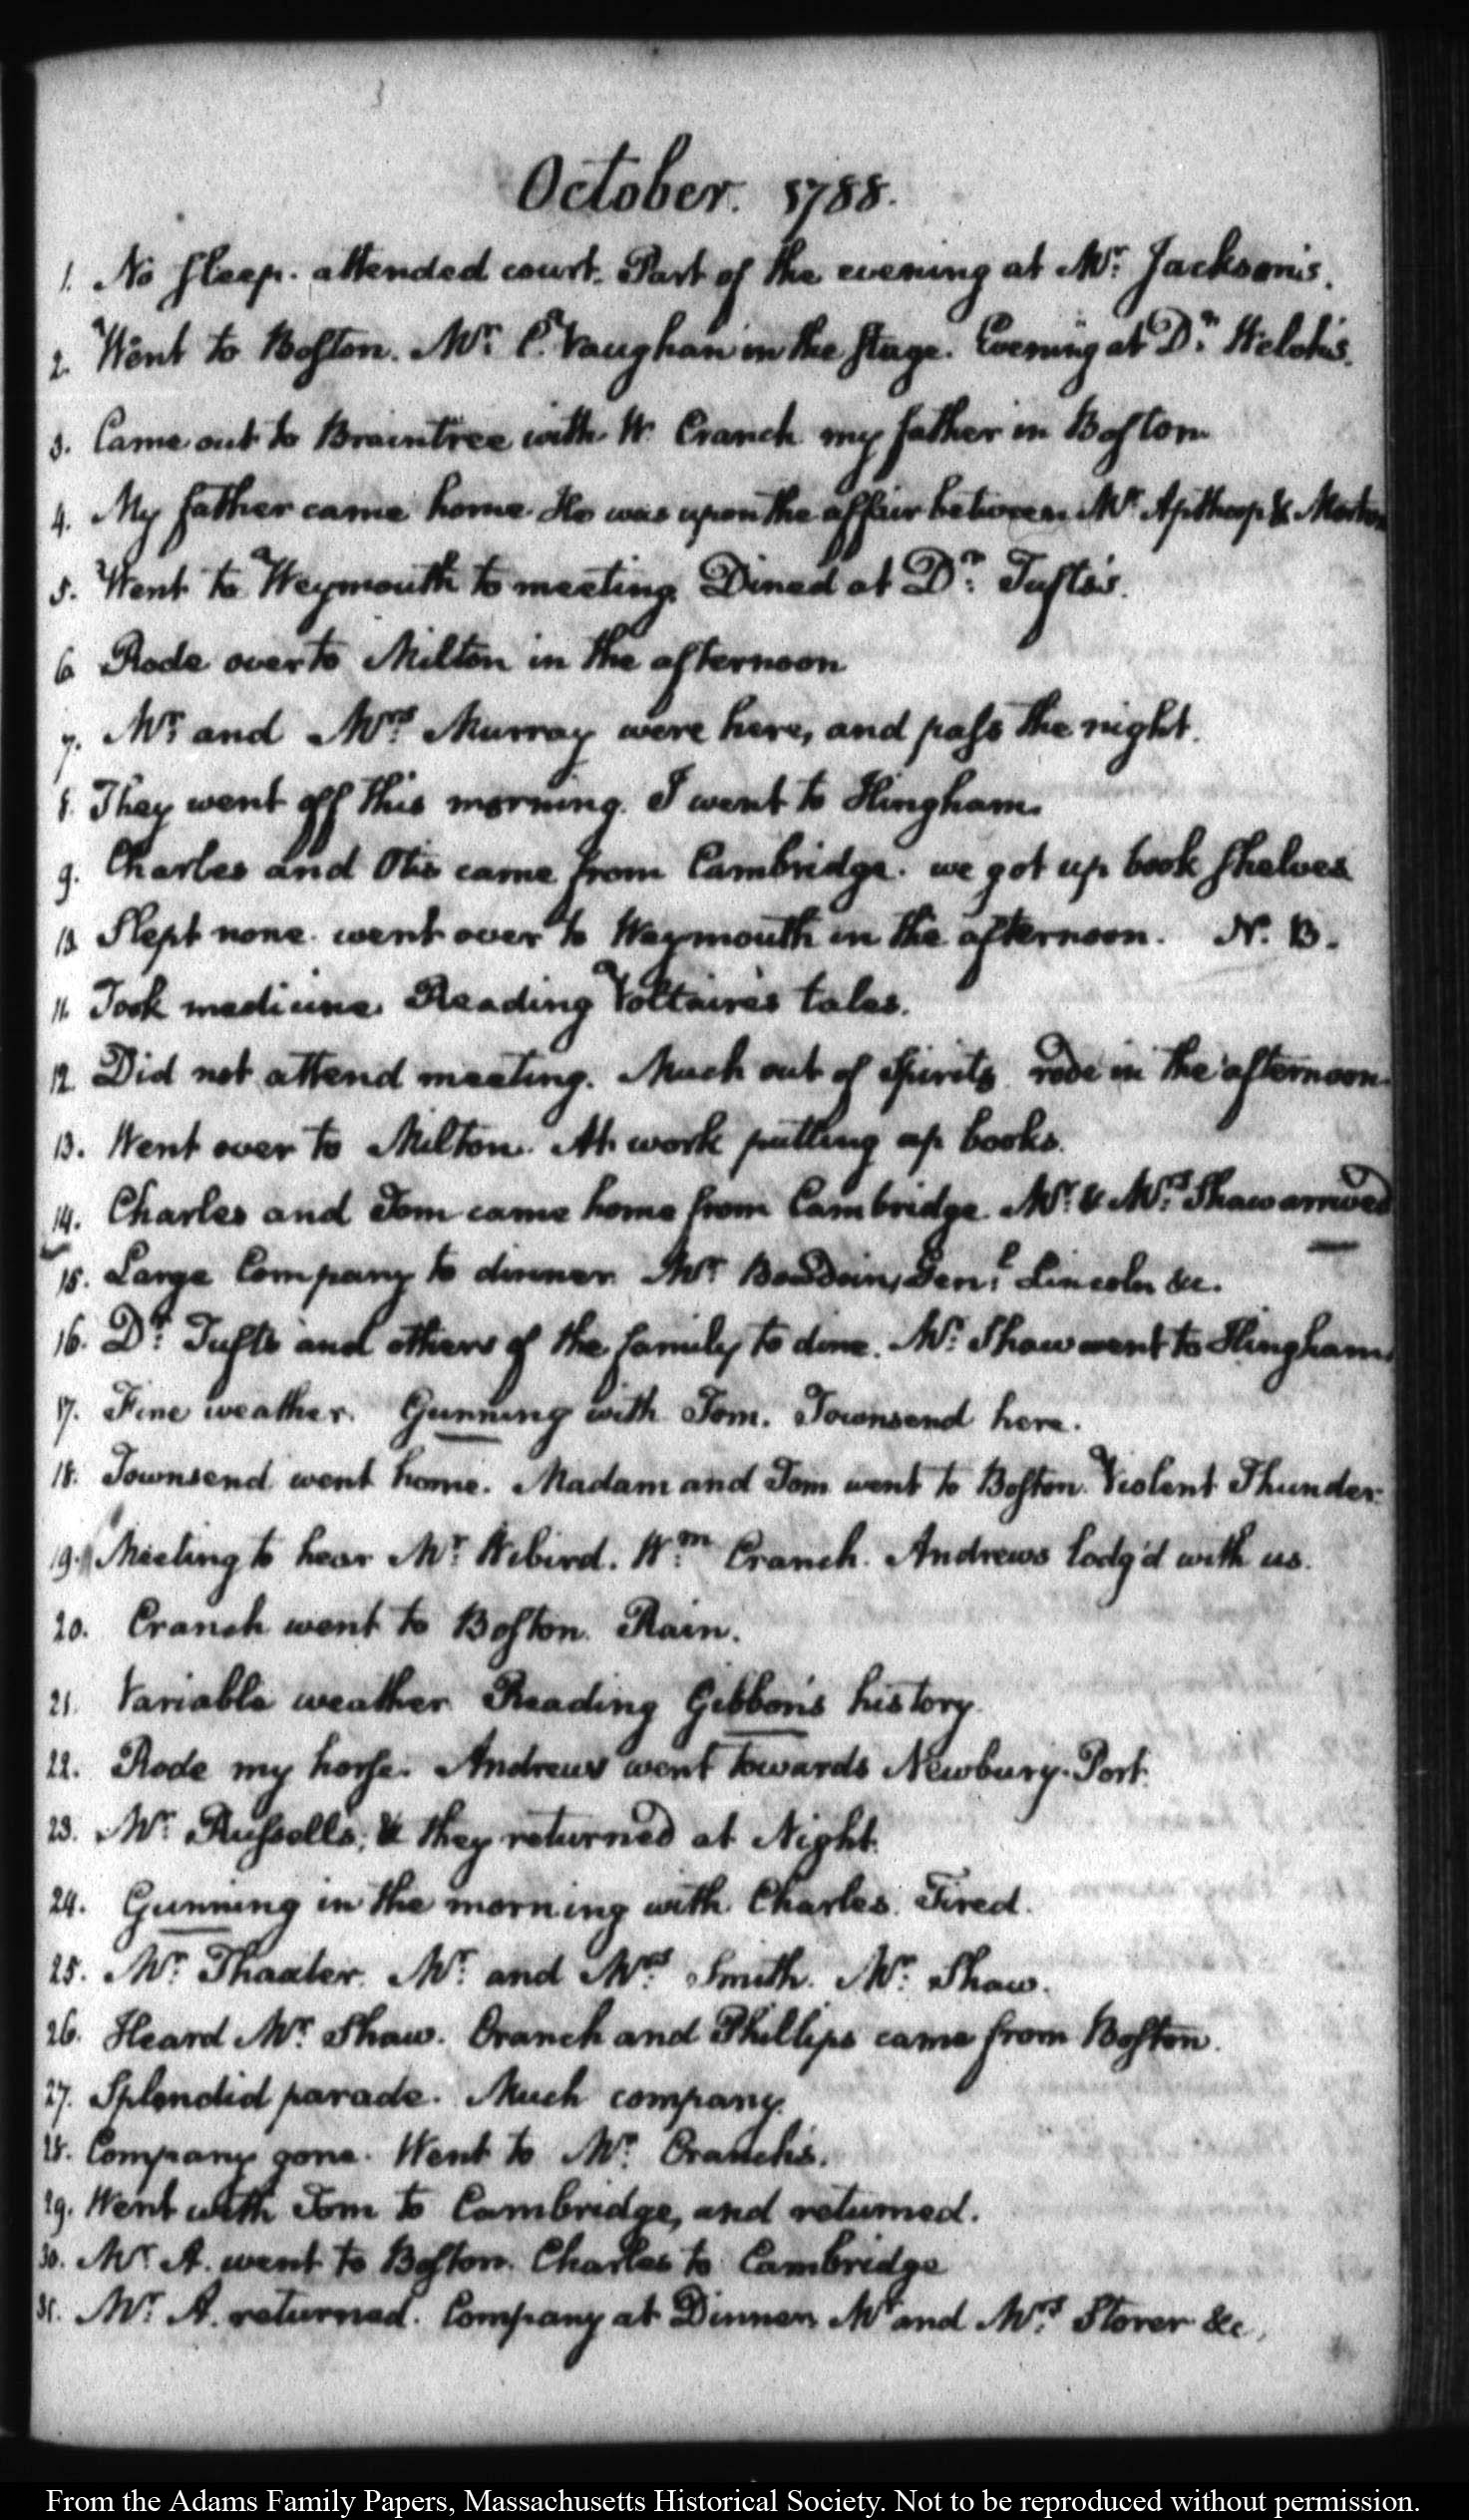 October. 1788.
1. No sleep. attended court. Part of the evening at Mr. Jackson's.
2. Went to Boston. Mr. C. Vaughan in the stage. Evening at Dr. Welch's.
3. Came out to Braintree with W. Cranch my father in Boston
4. My father came home. He was upon the affair between Mr. Apthorp & Morton
5. Went to Weymouth to meeting. Dined at Dr. Tufts's.
6. Rode over to Milton in the afternoon
7. Mr. and Mrs. Murray were here, and pass the night.
8. They went off this morning. I went to Hingham.
9. Charles and Otis came from Cambridge. we got up book shelves
10. Slept none. went over to Weymouth in the afternoon. N. B.
11. Took medicine. Reading Voltaire's tales.
12. Did not attend meeting. Much out of spirits. rode in the afternoon.
13. Went over to Milton. At work putting up books.
14. Charles and Tom came home from Cambridge. Mr. & Mrs. Shaw arrived
15. Large Company to dinner. Mr. Bowdoin, Genl. Lincoln &c.
16. Dr. Tufts and others of the family to dine. Mr. Shaw went to Hingham.
17. Fine weather. Gunning with Tom. Townsend here.
18. Townsend went home. Madam and Tom went to Boston. Violent Thunder.
19. Meeting to hear Mr. Wibird. Wm. Cranch. Andrews lodg'd with us.
20. Cranch went to Boston. Rain.
21. Variable weather. Reading Gibbon's history.
22. Rode my horse. Andrews went towards Newbury-Port.
23. Mr. Russells, & they returned at Night.
24. Gunning in the morning with Charles. Tired.
25. Mr. Thaxter. Mr. and Mrs. Smith. Mr. Shaw.
26. Heard Mr. Shaw. Cranch and Phillips came from Boston.
27. Splendid parade. Much company.
28. Company gone. Went to Mr. Cranch's.
29. Went with Tom to Cambridge, and returned.
30. Mr. A. went to Boston. Charles to Cambridge
31. Mr. A. returned. Company at Dinner. Mr and Mrs. Storer &c.
From the Adams Family Papers, Massachusetts Historical Society. Not to be reproduced without permission.